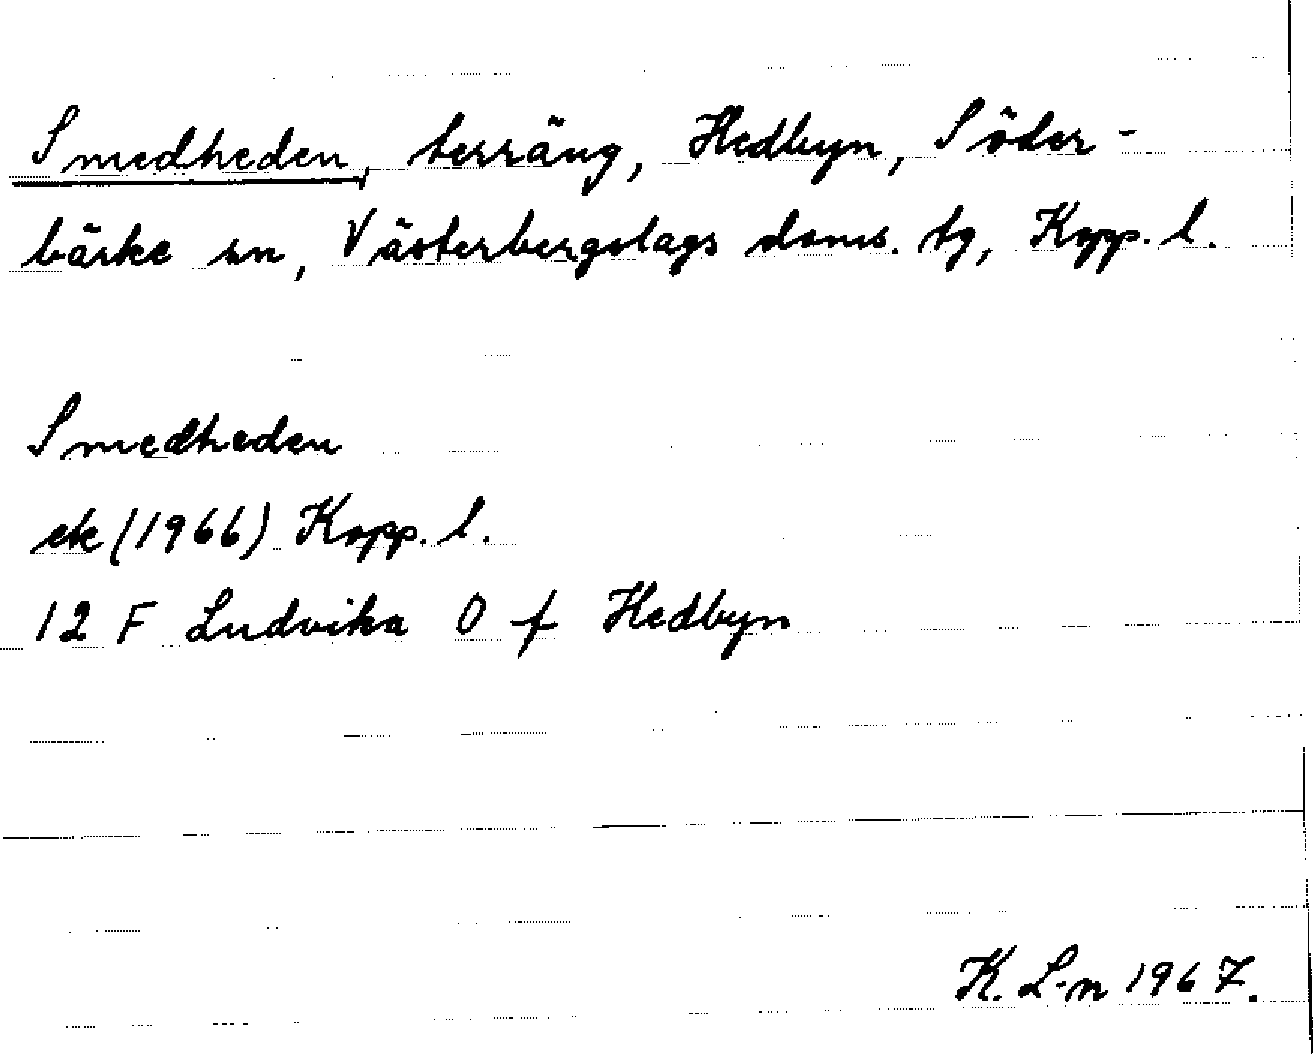 Smedheden, terräng, Hedbyn, Söder-
bärke sn, Västerbergslags doms. tg, Kopp. l.
Smedheden
ek (1966) Kopp. l.
12 F Ludvika O f Hedbyn
K. L-n 1967.